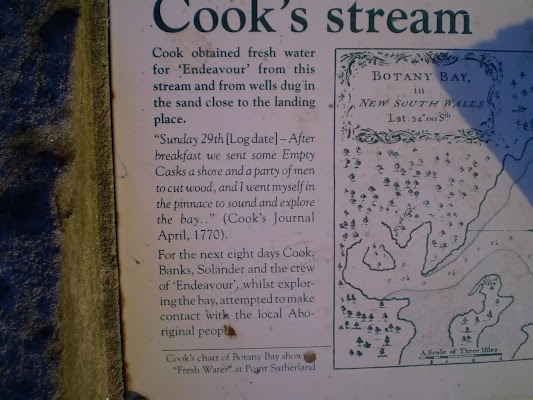 Cook's stream
Cook obtained fresh water
for 'Endeavour' from this
stream and from wells dug in
the sand close to the landing
place.
"Sunday 29th [Log date] – After
breakfast we sent some Empty
Casks a shore and a party of men
to cut wood, and I went myself in
the pinnace to sound and explore
the bay. ." (Cook's Journal
April, 1770).
For the next eight days Cook,
Banks, Solander and the crew
of 'Endeavour', whilst explor-
ing the bay, attempted to make
contact with the local Abo-
riginal people.
Cook's chart of Botany Bay show
"Fresh Water" at Point Sutherland
BOTANY BAY,
in
NEW SOUTH WALES
Lat: 34°00 Sth
A Scale of Three Miles